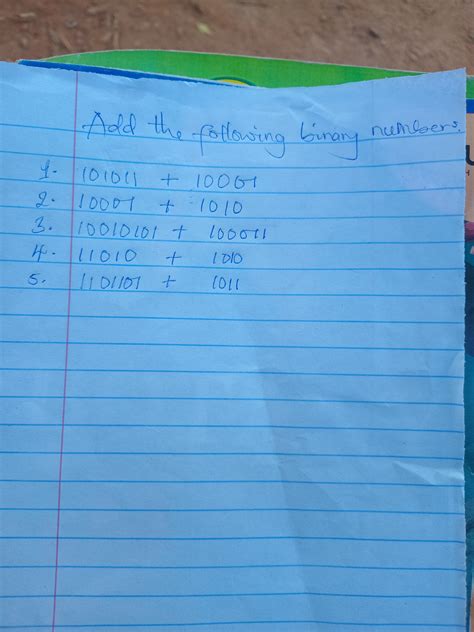 Add the following binary numbers.
1. 101011 + 10001
2. 10001 + 1010
3. 10010101 + 100011
4. 11010 + 1010
5. 1101101 + 1011